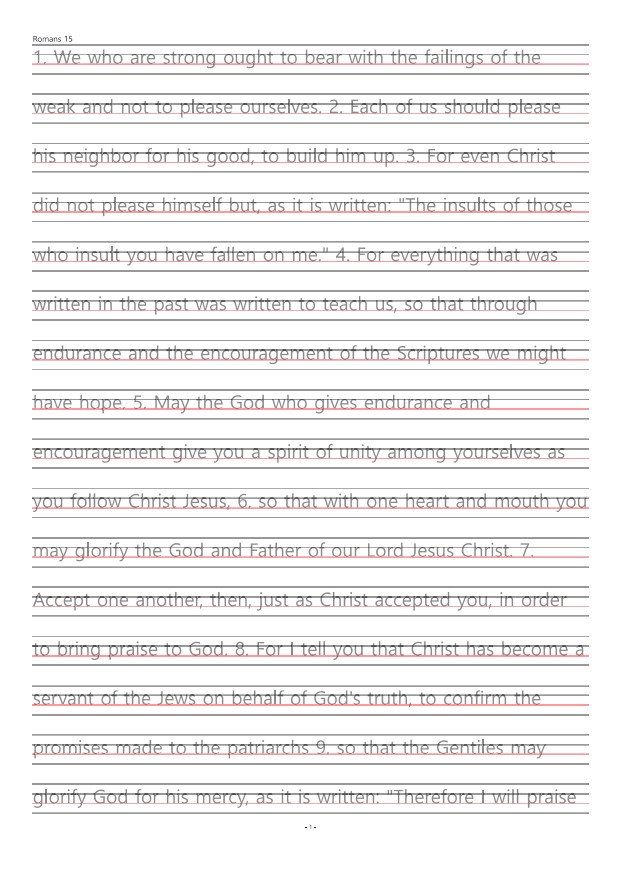 Romans 15
1. We who are strong ought to bear with the failings of the
weak and not to please ourselves. 2. Each of us should please
his neighbor for his good, to build him up. 3. For even Christ
did not please himself but, as it is written: "The insults of those
who insult you have fallen on me." 4. For everything that was
written in the past was written to teach us, so that through
endurance and the encouragement of the Scriptures we might
have hope. 5. May the God who gives endurance and
encouragement give you a spirit of unity among yourselves as
you follow Christ Jesus, 6. so that with one heart and mouth you
may glorify the God and Father of our Lord Jesus Christ. 7.
Accept one another, then, just as Christ accepted you, in order
to bring praise to God. 8. For I tell you that Christ has become a
servant of the Jews on behalf of God's truth, to confirm the
promises made to the patriarchs 9. so that the Gentiles may
glorify God for his mercy, as it is written: "Therefore I will praise
- 1 -